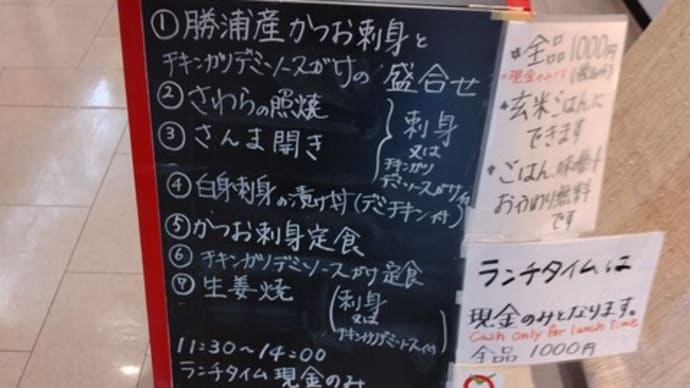 ① 勝浦産かつお刺身と
チキンカツデミソースがけの 盛合せ
② さわらの照焼
③ さんま開き
刺身
又は
チキンカツ
デミソースがけ付
④ 白身刺身の漬け丼(デミチキン付)
⑤ かつお刺身定食
⑥ チキンカツデミソースがけ定食
⑦ 生姜焼
(刺身
又は
チキンカツデミソース付)
11:30～14:00
ランチタイム現金のみ
*全品1000円
*現金のみです(税込み)
*玄米ごはんに
できます
*ごはん、味噌汁
おかわり無料
です
ランチタイムは
現金のみとなります。
Cash only for lunch time
全品 1000円